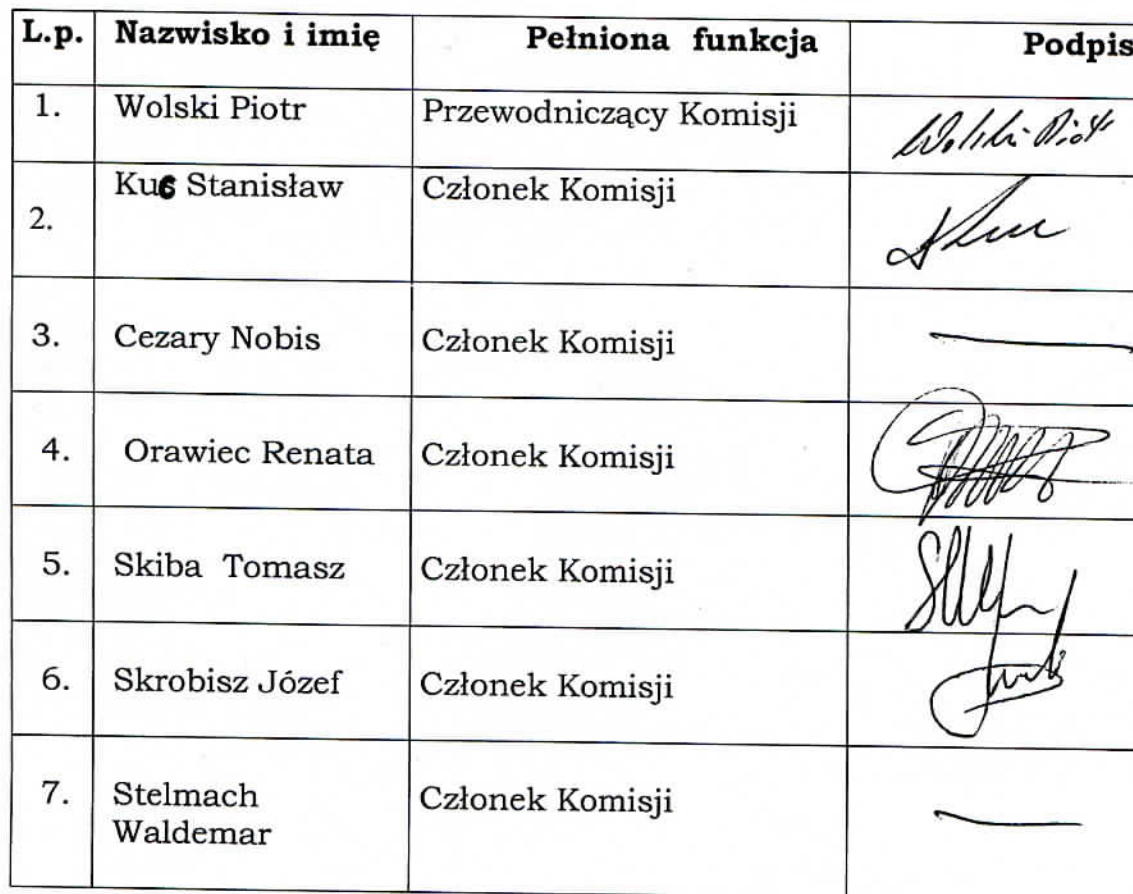 L.p. Nazwisko i imię Pełniona funkcja Podpis
1. Wolski Piotr Przewodniczący Komisji Wolski Piotr
2. Kuc Stanisław Członek Komisji
3. Cezary Nobis Członek Komisji
4. Orawiec Renata Członek Komisji
5. Skiba Tomasz Członek Komisji
6. Skrobisz Józef Członek Komisji
7. Stelmach Członek Komisji
Waldemar